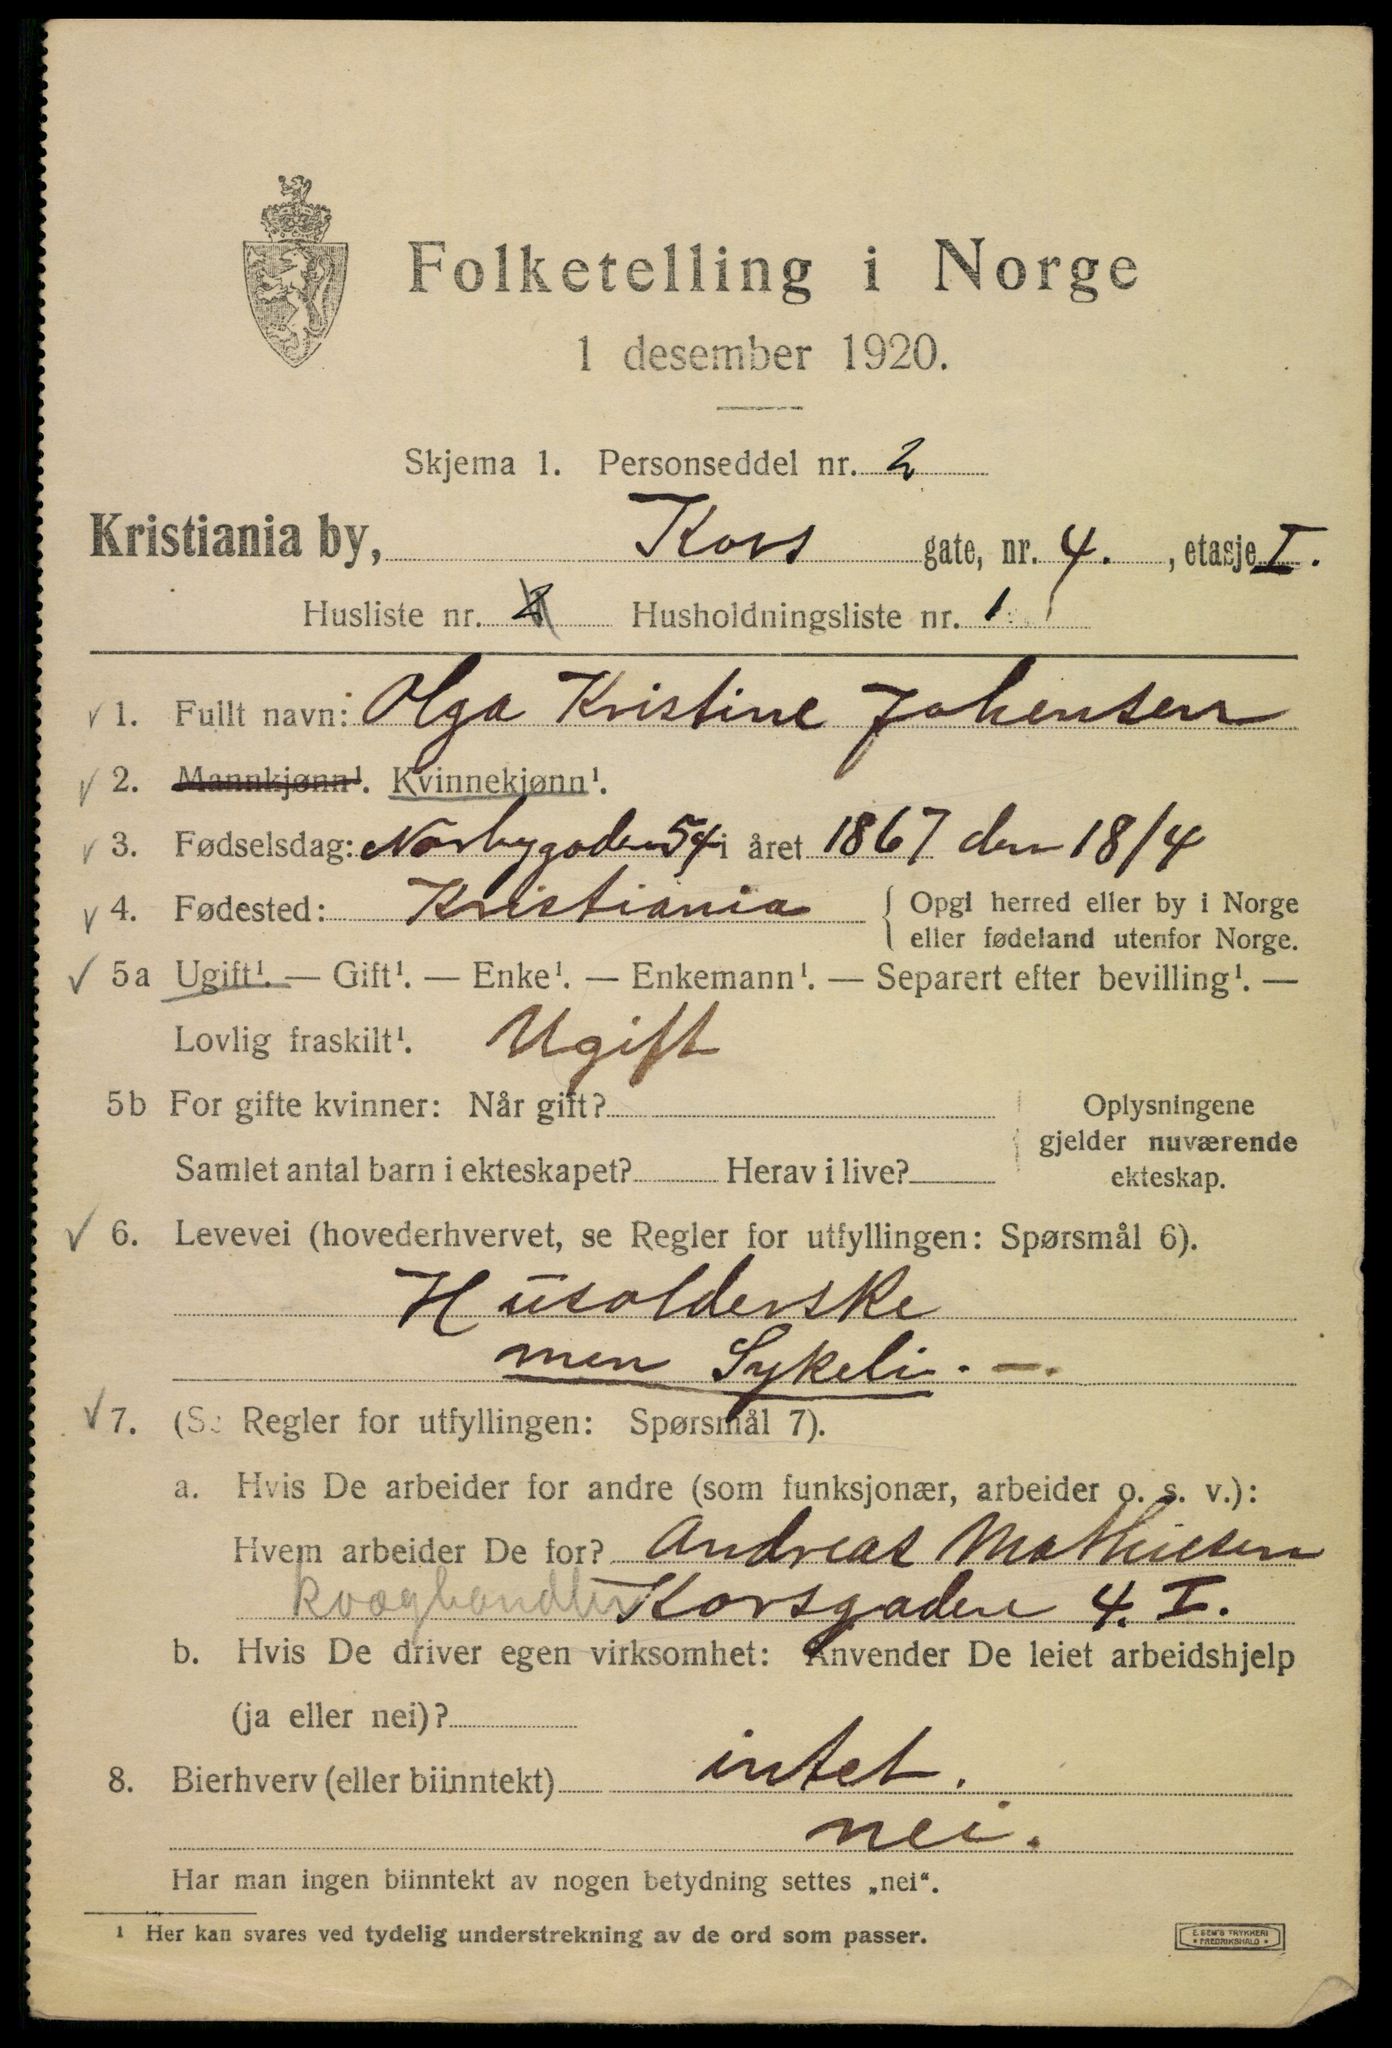 Folketelling i Norge
1 desember 1920.
Skjema 1. Personseddel nr. 2
Kristiania by, Kors gate, nr. 4. , etasje I.
Husliste nr. 2 Husholdningsliste nr. 1
1. Fullt navn: Olga Kristine Johensen
2. Mannkjønn¹. Kvinnekjønn¹.
3. Fødselsdag: Norbygaden 54 i året 1867 den 18/4
4. Fødested: Kristiania { Opgi herred eller by i Norge
eller fødeland utenfor Norge.
5a Ugift¹. — Gift¹. — Enke¹. — Enkemann¹. — Separert efter bevilling¹. —
Lovlig fraskilt¹. Ugift
5b For gifte kvinner: Når gift? Oplysningene
gjelder nuværende
Samlet antal barn i ekteskapet? Herav i live? ekteskap.
6. Levevei (hovederhvervet, se Regler for utfyllingen: Spørsmål 6).
Husolderske
men Sykeli. —.
7. (Se Regler for utfyllingen: Spørsmål 7).
a. Hvis De arbeider for andre (som funksjonær, arbeider o. s. v.):
Hvem arbeider De for? Andreas Mathiesen
kvæghandler Korsgaden 4. I.
b. Hvis De driver egen virksomhet: Anvender De leiet arbeidshjelp
(ja eller nei)?
8. Bierhverv (eller biinntekt) intet.
nei.
Har man ingen biinntekt av nogen betydning settes „nei“.
¹ Her kan svares ved tydelig understrekning av de ord som passer.
E. SEM'S TRYKKERI
* FREDRIKSHALD *